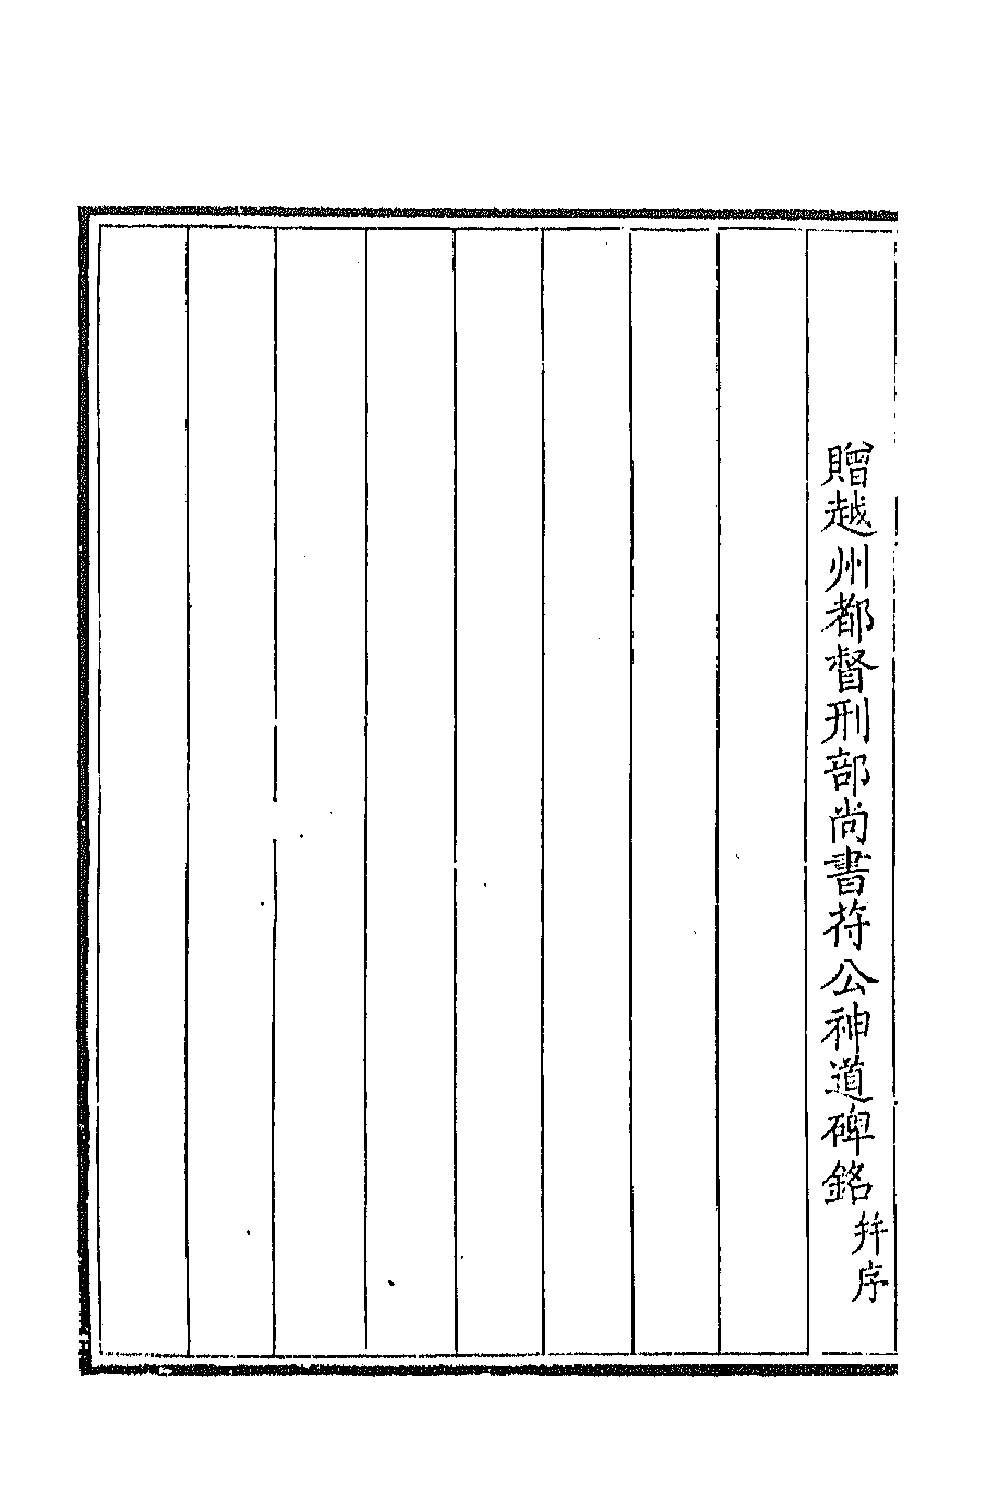 贈越州都督刑部尚書苻公神道碑銘并序